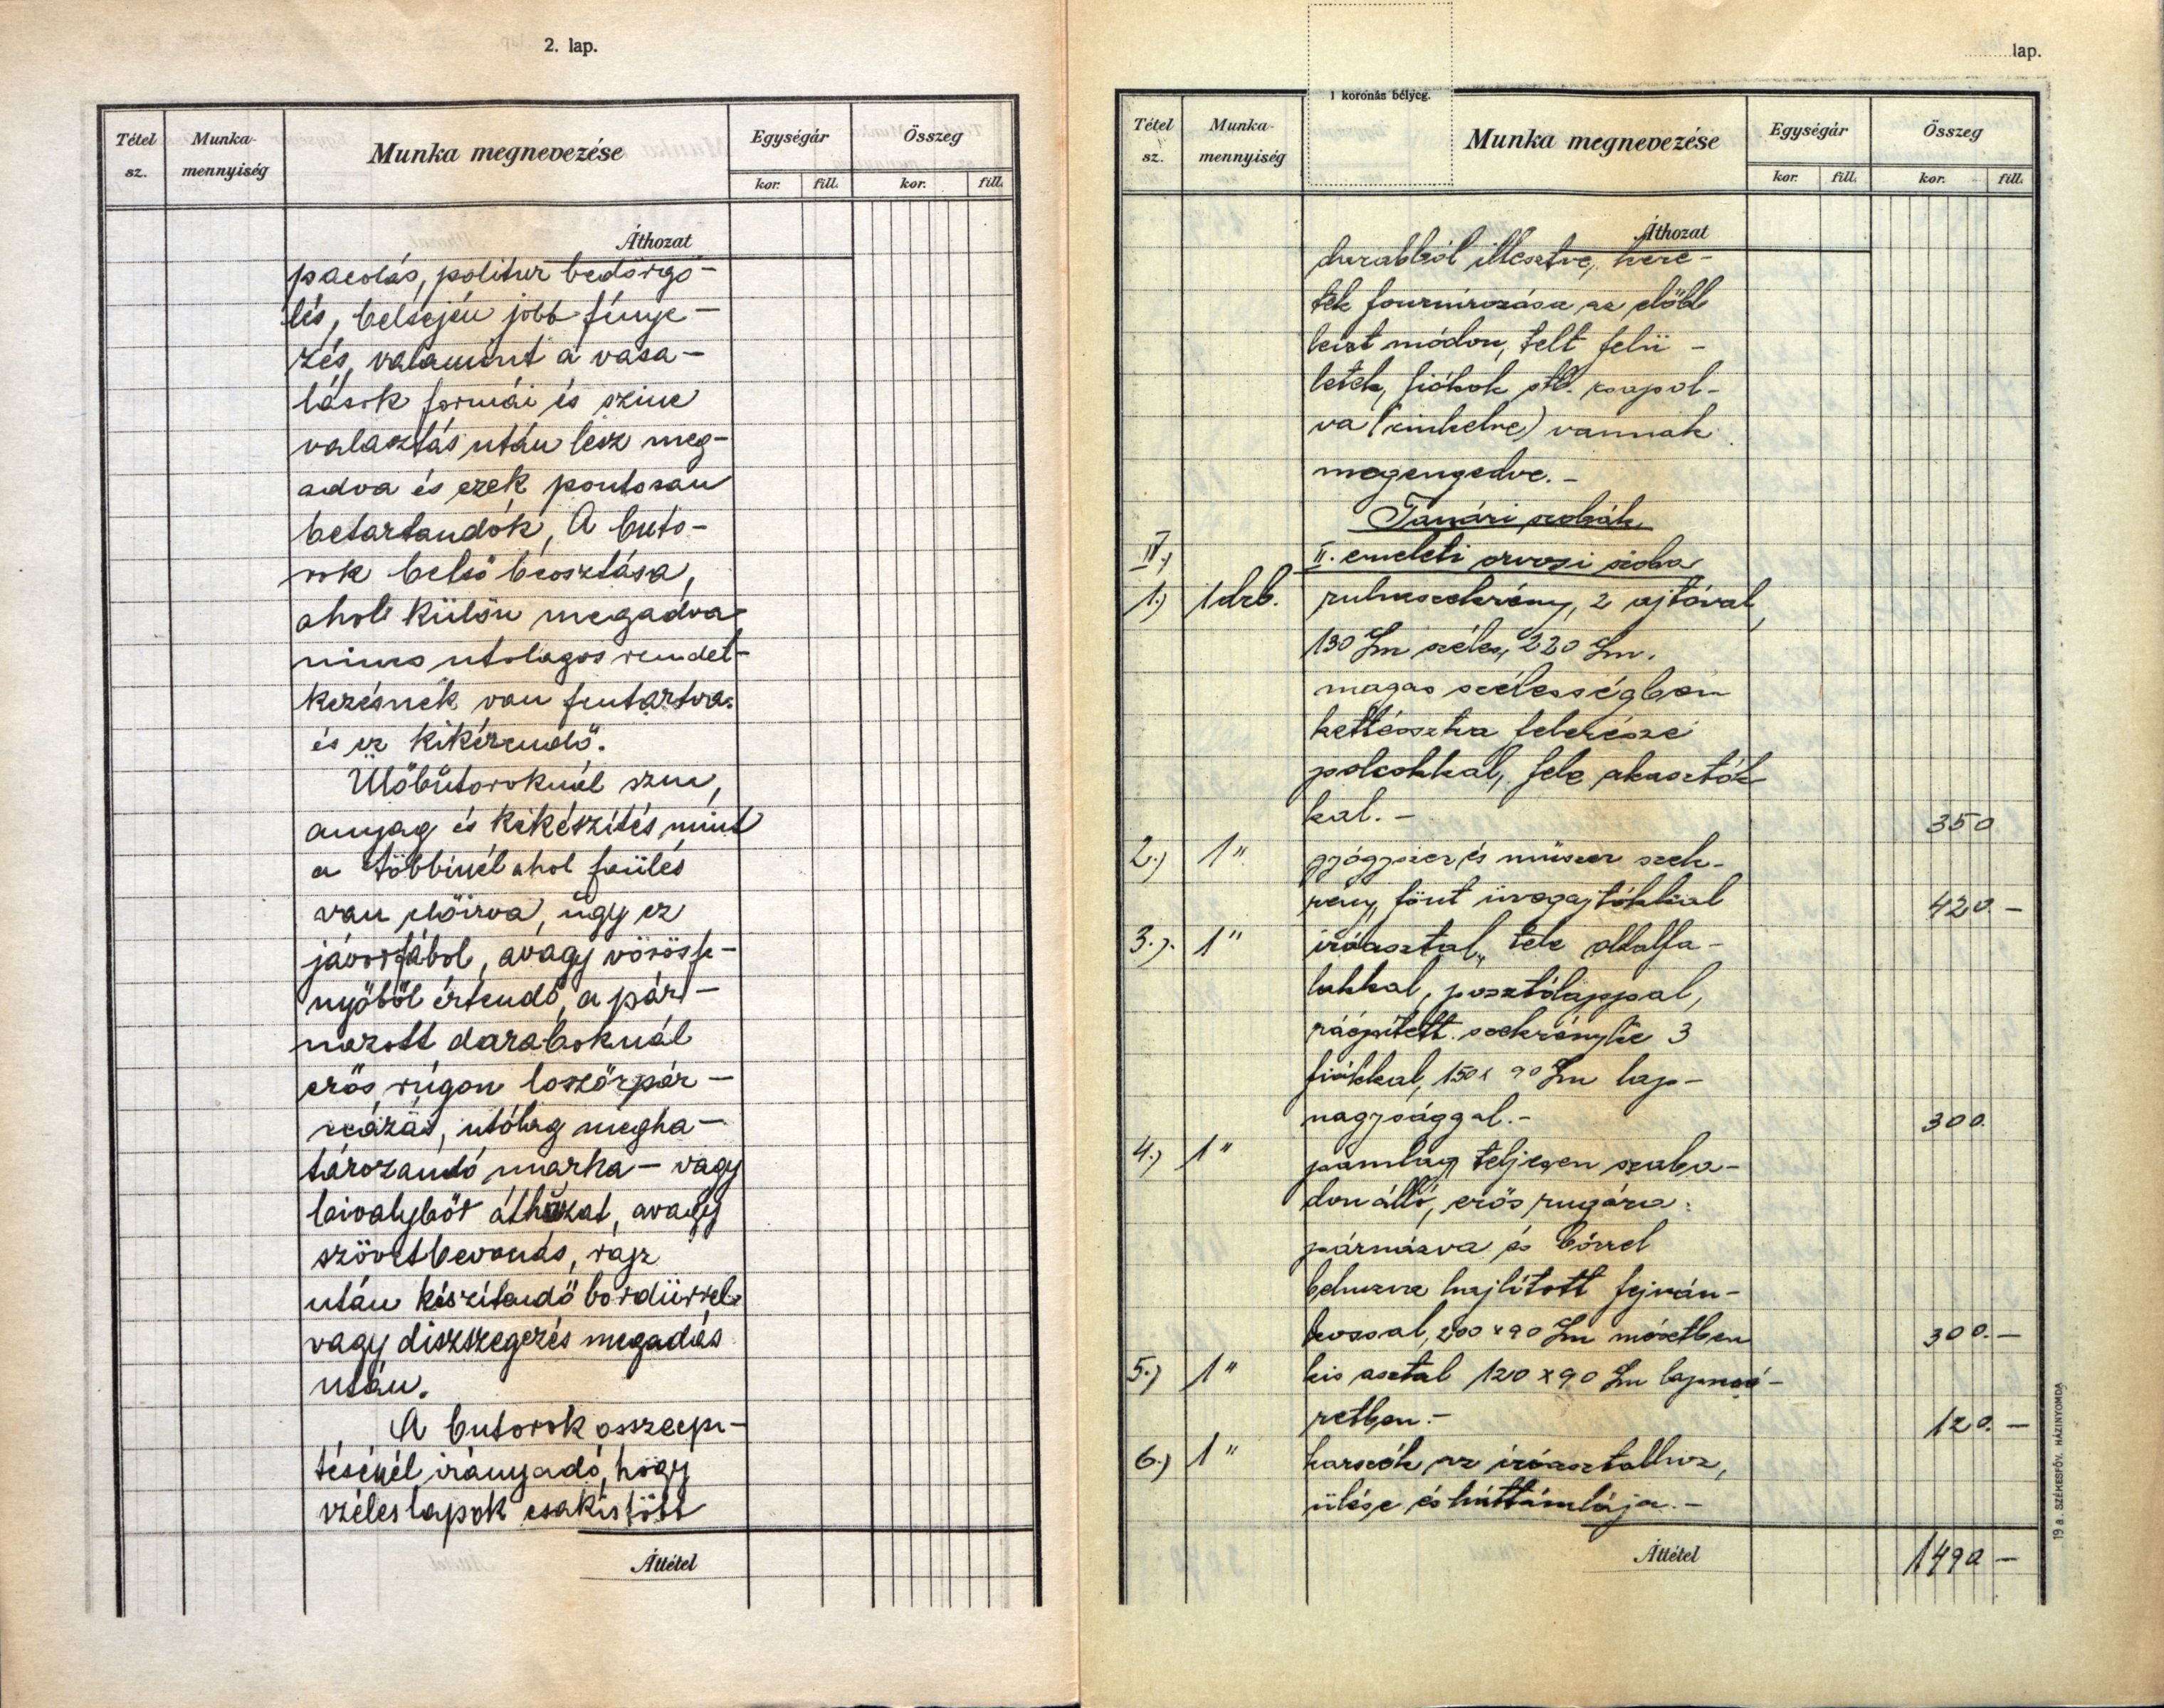 2. lap.
Tétel sz.
Munka-mennyiség
Munka megnevezése
Egységár
Összeg
kor.
fill.
kor.
fill.
Áthozat
pacolás, politur bedörgö-
lés, belsején jobb fénye-
zés, valamint a vasa-
lások formái és szine
választás után lesz meg-
adva és ezek pontosan
betartandók, A buto-
rok belső beosztása,
ahol külön megadva
nincs utolagos rendel-
kezésnek van fentartva.
és ez kikérendő.
Ülőbútoroknál szin,
anyag és kikészités mint
a többinél ahol faülés
van előirva, úgy ez
jávorfából, avagy vörösfe-
nyőből értendő, a pár-
názott daraboknál
erős rúgon loszőrpár-
názás, utólag megha-
tározandó marha- vagy
bivalybőr áthúzat, avagy
szövetbevonás, rajz
után készitendő bordürrel
vagy diszszegezés megadás
után.
A butorok összeépi-
tésénél irányadó, hogy
széles lapok csakis több
Áttétel
lap.
1 koronás bélyeg.
Tétel sz.
Munka-mennyiség
Munka megnevezése
Egységár
Összeg
kor.
fill.
kor.
fill.
Áthozat
darabból illesztve, kere-
tek fournirozása az előbb
leirt módon, telt felü-
letek, fiókok stb. csapol-
va (cinkelve) vannak
megengedve.-
Tanári szobák
IV.) II. emeleti orvosi szoba
1.) 1 drb. ruhaszekrény, 2 ajtóval,
130 cm széles, 220 cm.
magas szélességben
kettéosztva felerésze
polcokkal, fele akasztók
kal.- 350
2.) 1 " gyógyszer és müszer szek-
rény, fönt üvegajtókkal 420.-
3.) 1 " iróasztal, tele oldalfa-
lakkal, posztólappal,
ráépitett szekrényke 3
fiókkal, 150 x 90 cm lap-
nagysággal.- 300.
4.) 1 " pamlag teljesen szaba-
don álló, erős rugóra
párnázva és bőrrel
behuzva hajlitott fejván-
kossal, 200 x 90 cm méretben 300.-
5.) 1 " kis asztal 120 x 90 cm lapmé-
retben.- 120.-
6.) 1 " karszék az iróasztalhoz,
ülése és háttámlája.-
Áttétel 1490-
19 a. SZÉKESFŐV. HÁZINYOMDA